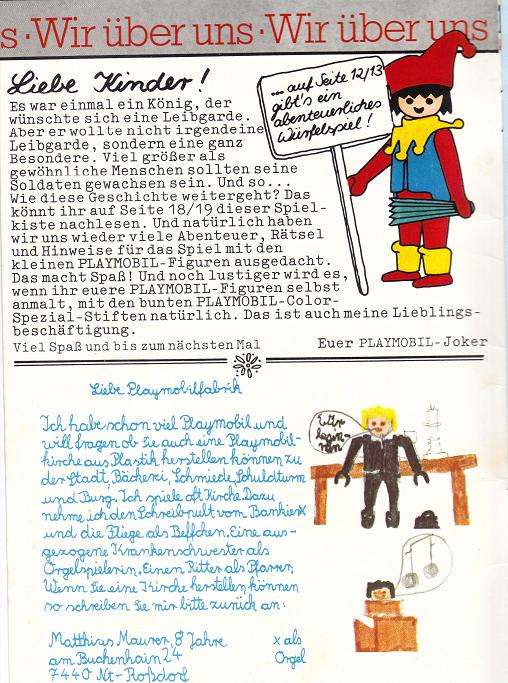 s · Wir über uns · Wir über uns
Liebe Kinder!
Es war einmal ein König, der
wünschte sich eine Leibgarde.
Aber er wollte nicht irgendeine
Leibgarde, sondern eine ganz
Besondere. Viel größer als
gewöhnliche Menschen sollten seine
Soldaten gewachsen sein. Und so...
Wie diese Geschichte weitergeht? Das
könnt ihr auf Seite 18/19 dieser Spiel-
kiste nachlesen. Und natürlich haben
wir uns wieder viele Abenteuer, Rätsel
und Hinweise für das Spiel mit den
kleinen PLAYMOBIL-Figuren ausgedacht.
Das macht Spaß! Und noch lustiger wird es,
wenn ihr euere PLAYMOBIL-Figuren selbst
anmalt, mit den bunten PLAYMOBIL-Color-
Spezial-Stiften natürlich. Das ist auch meine Lieblings-
beschäftigung.
Viel Spaß und bis zum nächsten Mal
Euer PLAYMOBIL-Joker
... auf Seite 12/13
gibt's ein
abenteuerliches
Würfelspiel!
Liebe Playmobilfabrik
Ich habe schon viel Playmobil und
will fragen ob Sie auch eine Playmobil-
kirche aus Plastik herstellen können zu
der Stadt, Bäckerei, Schmiede, Schuldturm
und Burg. Ich spiele oft Kirche. Dazu
nehme ich den Schreibpult vom Bankier x
und die Fliege als Beffchen. Eine aus-
gezogene Krankenschwester als
Orgelspielerin. Einen Ritter als Pfarrer.
Wenn Sie eine Kirche herstellen können
so schreiben Sie mir bitte zurück an:
Matthias Maurer, 8 Jahre
am Buchenhain 24
7440 Nt-Roßdorf
x als
Orgel
Wir